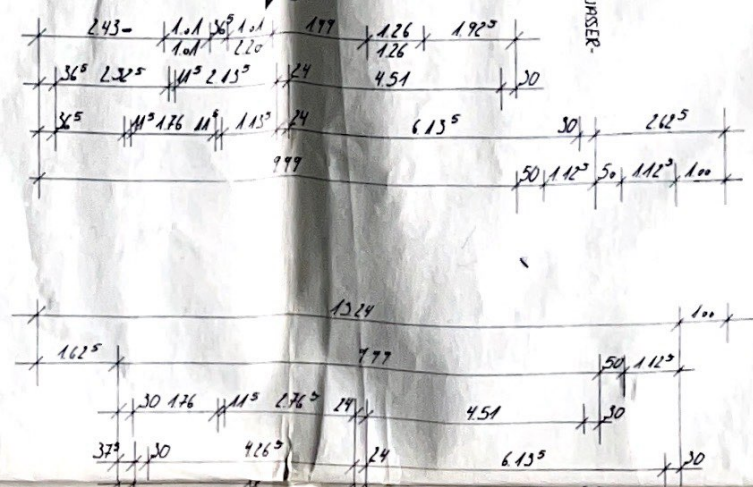 WASSER-
2.43- 1.01 36⁵ 1.01 1.99 1.26 1.92⁵
1.01 2.20 1.26
36⁵ 2.32⁵ 11⁵ 2.13⁵ 24 4.51 30
36⁵ 11⁵ 1.76 11⁵ 1.13⁵ 24 6.13⁵ 30 2.62⁵
9.99 50 1.12⁵ 50 1.12⁵ 1.00
13.24 1.00
1.62⁵ 50 1.12⁵
30 1.76 11⁵ 2.76⁵ 24 4.51 30
37⁵ 30 4.26⁵ 24 6.13⁵ 30